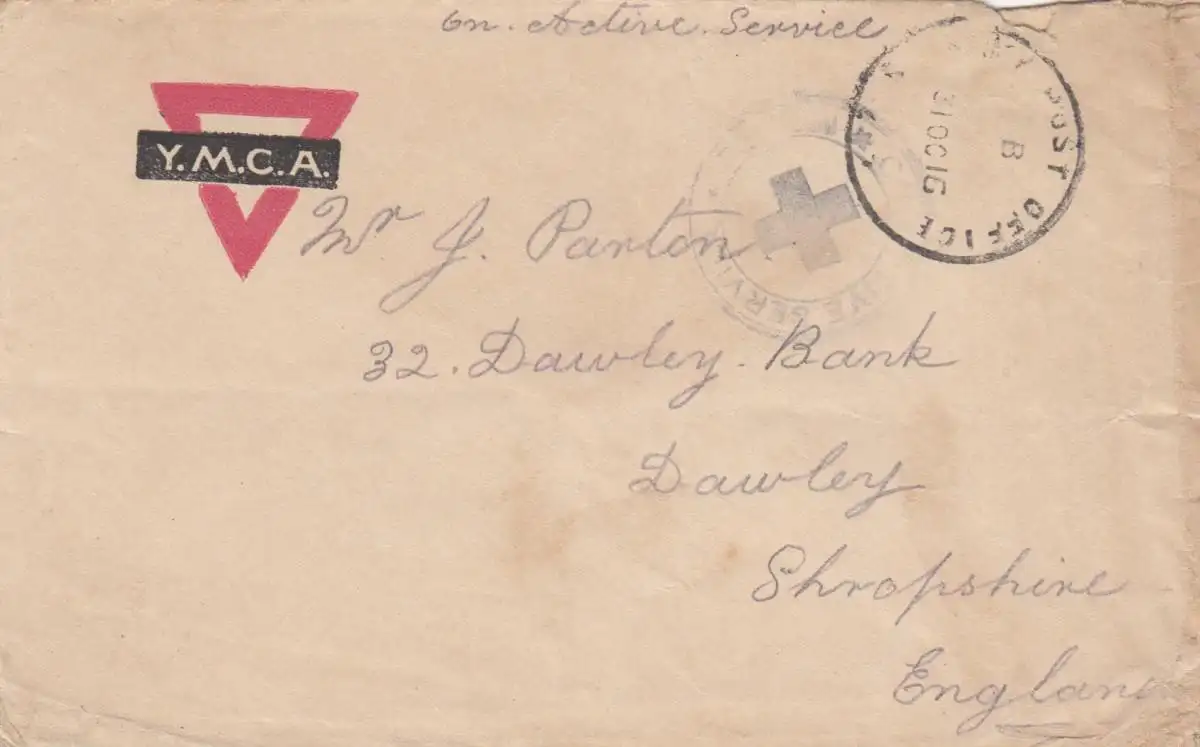 On. Active. Service
Y.M.C.A.
POST OFFICE
B
31 OC 16
SERVI
Mr J. Parton.
32. Dawley. Bank
Dawley
Shropshire
England